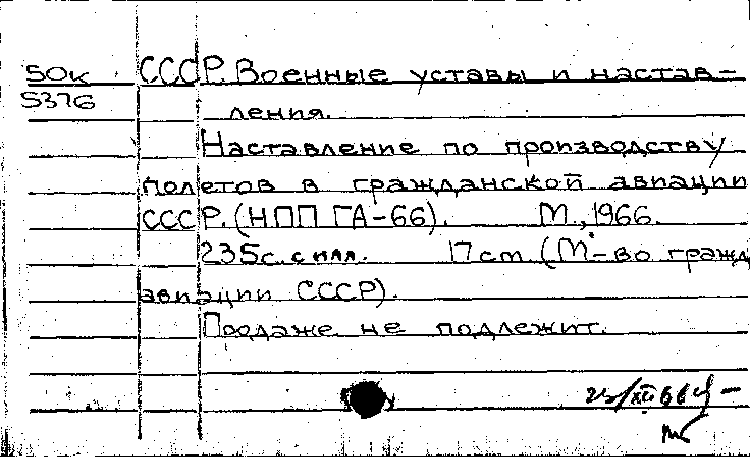 50к СССР. Военные уставы и настав-
5376 ления.
Наставление по производству
полетов в гражданской авиации
СССР. (НПП ГА-66). М., 1966.
235с. с илл. 17cm (М-во гражд
авиации СССР).
Продаже не подлежит.